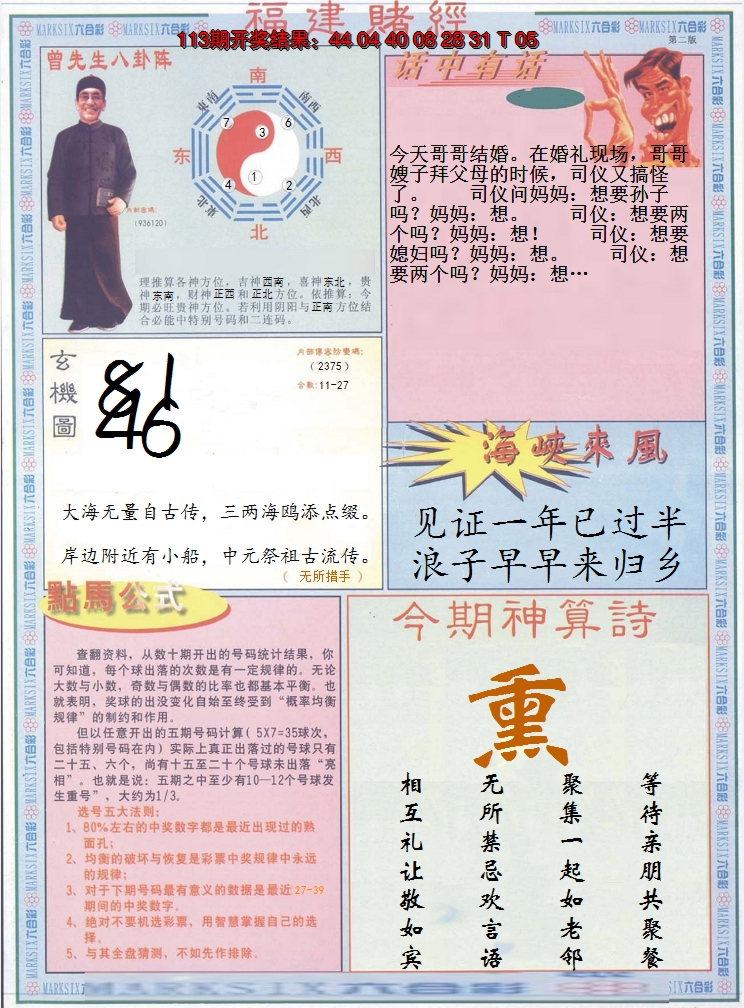 福建賭經
113期开奖结果：44 04 40 08 28 31 T 05
第二版
曾先生八卦阵
南
東南
南西
7
3
6
东
西
4
1
2
東北
北西
北
内部密碼:
(936120)
理推算各神方位，吉神西南，喜神东北，贵
神东南，财神正西和正北方位。依推算：今
期必旺贵神方位。若利用阴阳与正南方位结
合必能中特别号码和二连码。
话中有话
今天哥哥结婚。在婚礼现场，哥哥
嫂子拜父母的时候，司仪又搞怪
了。 司仪问妈妈：想要孙子
吗？妈妈：想。 司仪：想要两
个吗？妈妈：想！ 司仪：想要
媳妇吗？妈妈：想。 司仪：想
要两个吗？妈妈：想…
玄機圖
(2375)
合数:11-27
81
46
大海无量自古传，三两海鸥添点缀。
岸边附近有小船，中元祭祖古流传。
（ 无所措手 ）
海峽來風
见证一年已过半
浪子早早来归乡
點馬公式
查翻资料，从数十期开出的号码统计结果，你
可知道，每个球出落的次数是有一定规律的。无论
大数与小数，奇数与偶数的比率也都基本平衡。也
就表明，奖球的出没变化自始至终受到“概率均衡
规律”的制约和作用。
但以任意开出的五期号码计算( 5X7=35球次，
包括特别号码在内)实际上真正出落过的号球只有
二十五、六个，尚有十五至二十个号球未出落“亮
相”。也就是说：五期之中至少有10—12个号球发
生重号”，大约为1/3。
选号五大法则：
1、80%左右的中奖数字都是最近出现过的熟
面孔；
2、均衡的破坏与恢复是彩票中奖规律中永远
的规律；
3、对于下期号码最有意义的数据是最近27-39
期间的中奖数字。
4、绝对不要机选彩票，用智慧掌握自己的选
择。
5、与其全盘猜测，不如先作排除。
今期神算詩
熏
等待亲朋共聚餐
聚集一起如老邻
无所禁忌欢言语
相互礼让敬如宾
MARKSIX六合彩